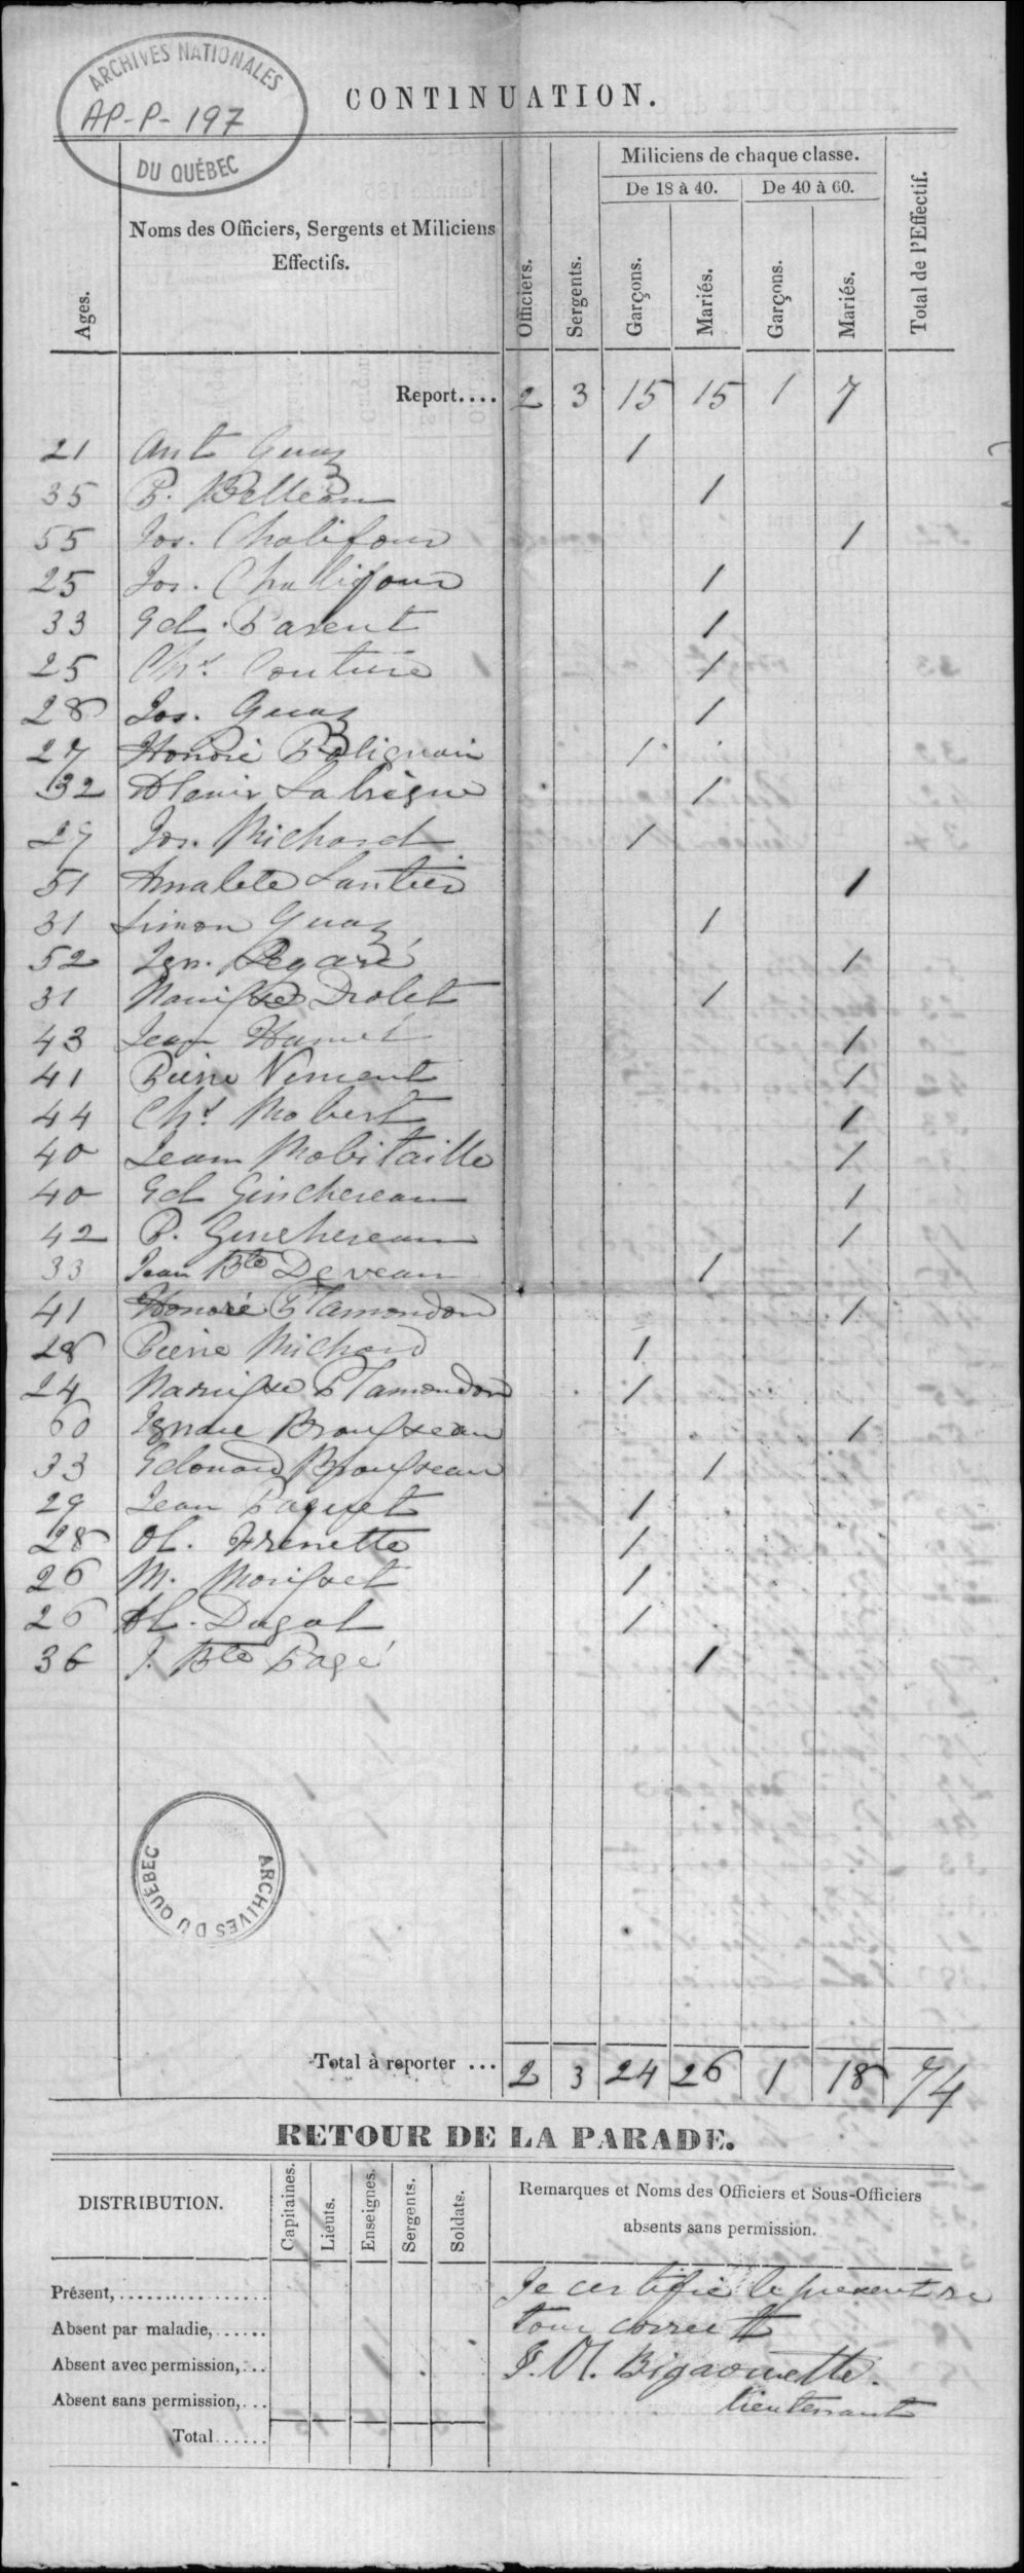 ARCHIVES NATIONALES
AP-P-197
DU QUÉBEC
CONTINUATION.
Ages.
Noms des Officiers, Sergents et Miliciens
Effectifs.
Officiers.
Sergents.
Miliciens de chaque classe.
De 18 à 40.
De 40 à 60.
Garçons.
Mariés.
Garçons.
Mariés.
Total de l'Effectif.
Report.... 2 3 15 15 1 7
21 Ant Guay 1
35 P. Belleau 1
55 Jos. Chalifour 1
25 Jos. Chalifour 1
33 Ed. Parent 1
25 Chs. Couture 1
28 Jos. Guay 1
27 Honoré 1
32 1
27 Jos. Michaud 1
51 1
31 Simon Guay 1
52 Ign. Légaré 1
31 Drolet 1
43 Jean Hamel 1
41 Pierre 1
44 Chs 1
40 Jean 1
40 Ed 1
42 P. 1
33 Jean Bte Deveau 1
41 Honoré Plamondon 1
28 Pierre Michaud 1
24 Plamondon 1
60 Brousseau 1
33 Edouard Brousseau 1
29 Jean Paquet 1
28 Ol. Frenette 1
26 M. 1
26 Dugal 1
36 J. Bte Pagé 1
ARCHIVES DU QUÉBEC
Total à reporter ... 2 3 24 26 1 18 74
RETOUR DE LA PARADE.
DISTRIBUTION.
Capitaines.
Lieuts.
Enseignes.
Sergents.
Soldats.
Remarques et Noms des Officiers et Sous-Officiers
absents sans permission.
Présent,................
Absent par maladie,......
Absent avec permission,...
Absent sans permission,...
Total......
Je certifie le present re
tour correct
J. Ol. Bigaouette.
lieutenant